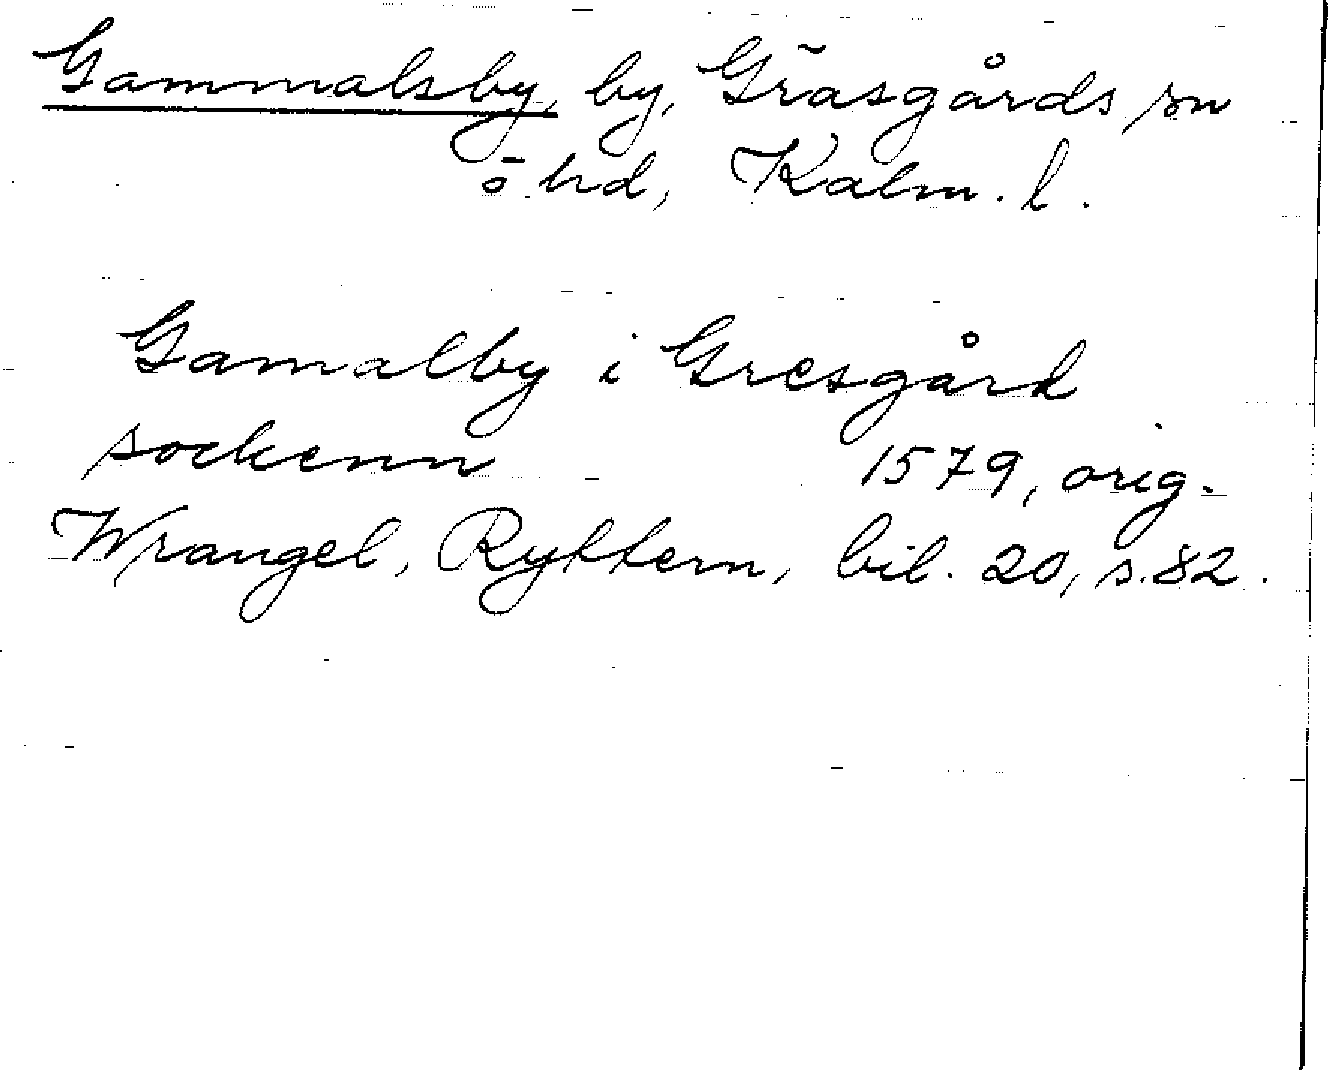 Gammalsby, by, Gräsgårds sn
ö. hd, Kalm. l.
Gamalby i Gresgård
sockenn 1579, orig.
Wrangel, Ryttern, bil. 20, s. 82.